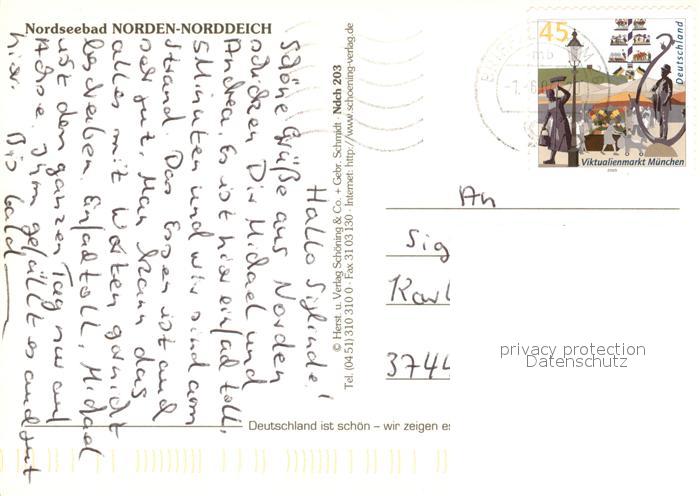 Nordseebad NORDEN-NORDDEICH
Hallo Siglinde!
Schöne Grüße aus Norden
schicken Dir Michael und
Andrea. Es ist hier einfach toll,
5 Minuten und wir sind am
Strand. Das Essen ist auch
sehr gut. Man kann das
alles mit Worten gar nicht
beschreiben. Einfach toll. Michael
ist den ganzen Tag nur auf
Achse. Ihm gefällt es auch gut
hier. Bis bald
© Herst. u. Verlag Schöning & Co. + Gebr. Schmidt · Ndch 203
Tel. (04 51) 310 310 0 · Fax 31 03 130 · Internet: http://www.schoening-verlag.de
Deutschland ist schön – wir zeigen es
45
Deutschland
Viktualienmarkt München
2003
An
Sig
Karl
3744
privacy protection
Datenschutz